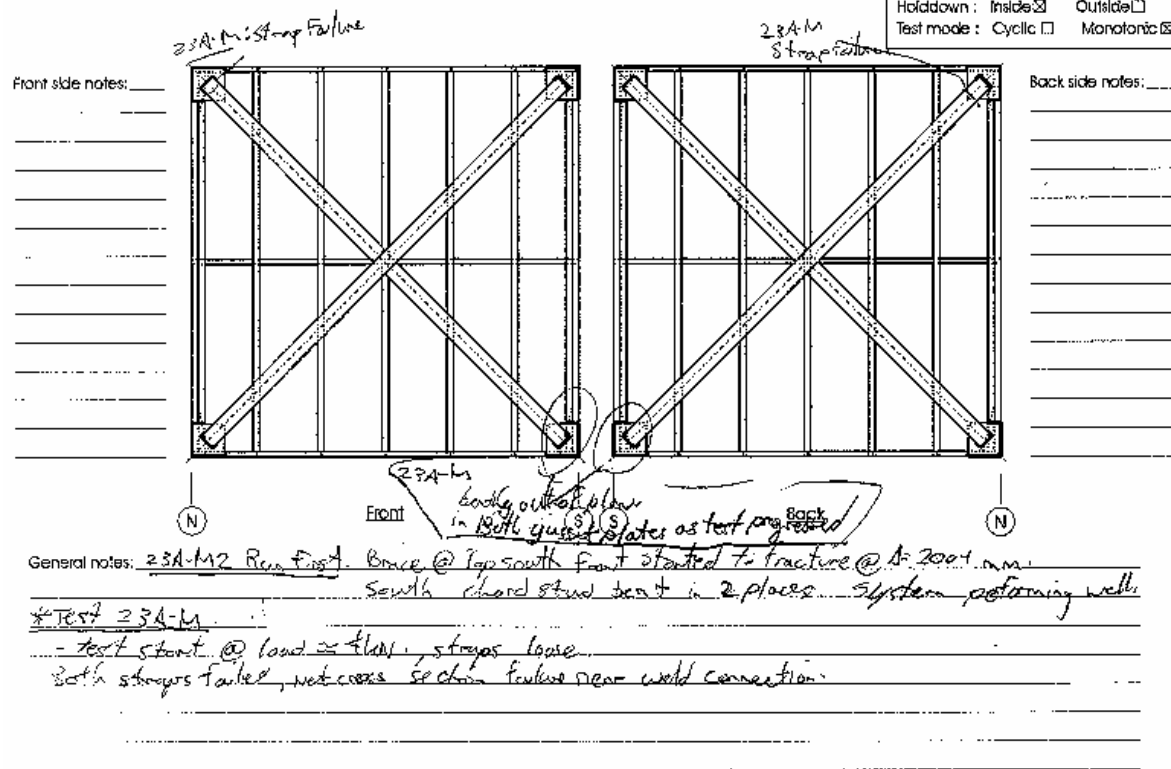 Holddown : Inside☒ Outside☐
Test mode : Cyclic ☐ Monotonic ☒
23A-M: Strap Failure
23A-M
Strap Failure
Front side notes:
Back side notes:
23A-M
out of plane
in Both gusset plates as test progressed
N Front S S Back N
General notes: 23A-M2 Run First. Brace @ Top south front started to fracture @ Δ= mm.
South chord stud bent in 2 places. System peforming well.
*Test 23A-M
- test start @ load ≈ , straps loose.
Both straps failed, net cross section failure near weld connection.